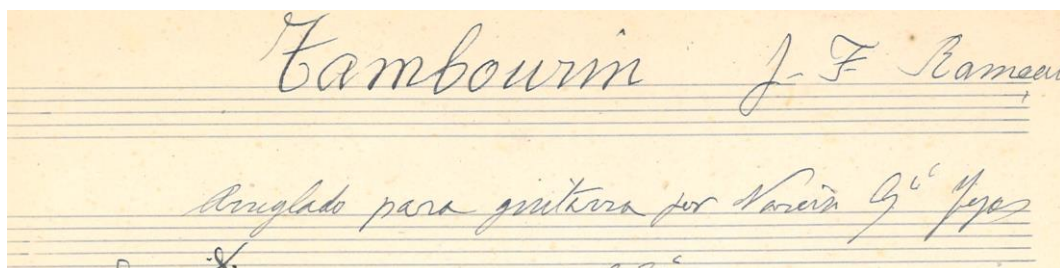 Tambourin J- F- Rameau
Arreglado para guitarra por Narciso Gª Yepes